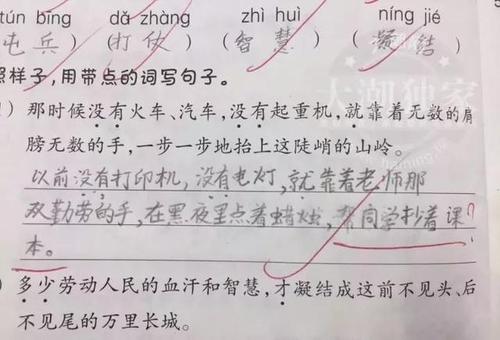 tún bīng dǎ zhàng zhì huì níng jié
(屯兵) (打仗) (智慧) (凝结)
照样子,用带点的词写句子。
)那时候没有火车、汽车,没有起重机,就靠着无数的肩
膀无数的手,一步一步地抬上这陡峭的山岭。
以前没有打印机,没有电灯,就靠着老师那
双勤劳的手,在黑夜里点着蜡烛,帮同学抄着课
本。
)多少劳动人民的血汗和智慧,才凝结成这前不见头、后
不见尾的万里长城。
大潮独家